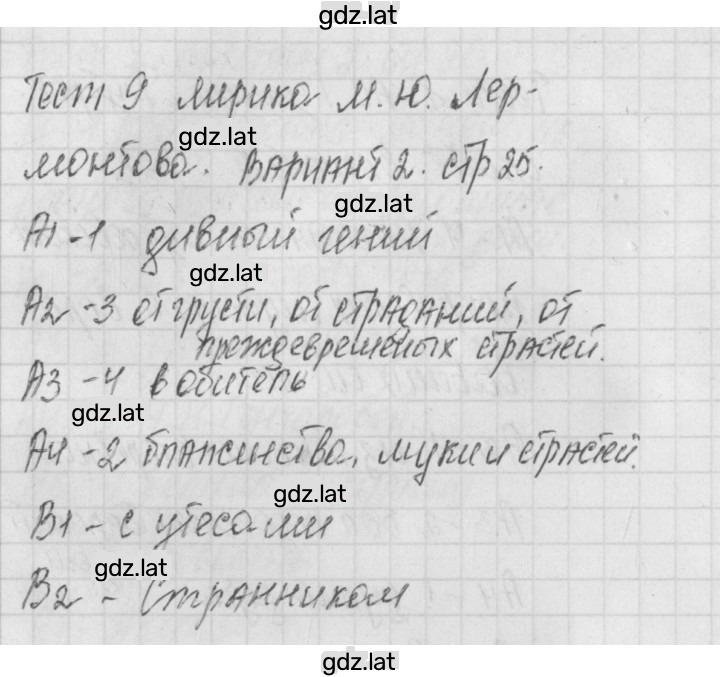 gdz.lat
Тест 9 лирика М.Ю. Лер-
gdz.lat
монтова. Вариант 2. стр 25.
gdz.lat
А1-1 дивный гений
gdz.lat
А2-3 от грусти, от страданий, от
преждевременых страстей.
А3-4 в обитель
gdz.lat
А4-2 блаженства, муки и страстей.
gdz.lat
В1-с утесами
gdz.lat
В2 - Странником
gdz.lat